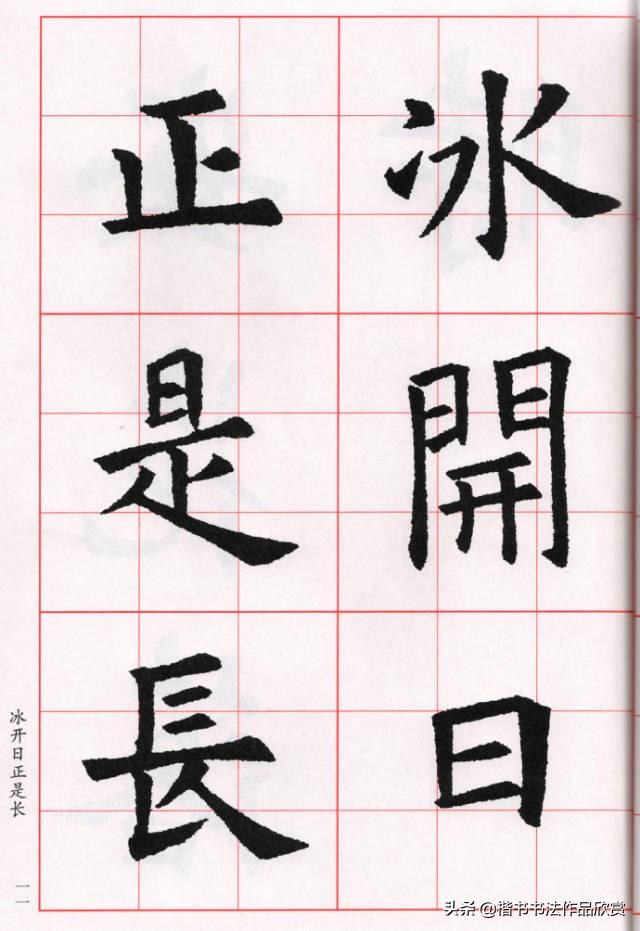 冰開日
正是長
冰开日正是长
一一
头条 @楷书书法作品欣赏